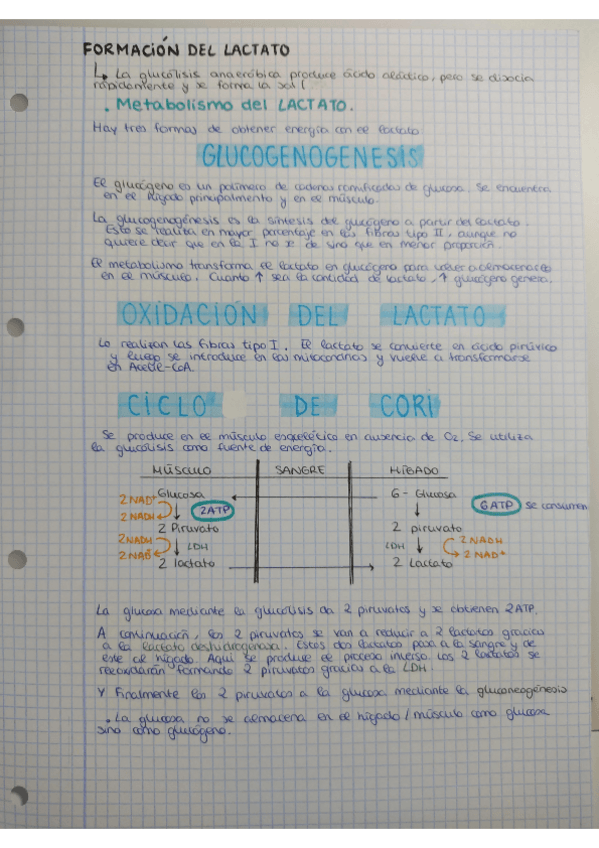 FORMACIÓN DEL LACTATO
La glucólisis anaeróbica produce ácido láctico, pero se disocia
rápidamente y se forma la sal (
. Metabolismo del LACTATO.
Hay tres formas de obtener energía con el lactato
GLUCOGENOGENESIS
El glucógeno es un polímero de cadenas ramificadas de glucosa. Se encuentra
en el hígado principalmente y en el músculo.
La glucogenogénesis es la síntesis del glucógeno a partir del lactato.
Esto se realiza en mayor porcentaje en las fibras tipo II, aunque no
quiere decir que en la I no se de sino que en menor proporción.
El metabolismo transforma el lactato en glucógeno para volver a almacenarlo
en el músculo. Cuanto ↑ sea la cantidad de lactato, ↑ glucógeno genesis.
OXIDACIÓN DEL LACTATO
Lo realizan las fibras tipo I. El lactato se convierte en ácido pirúvico
y luego se introduce en las mitocondrias y vuelve a transformarse
en Acetil-CoA.
CICLO DE CORI
Se produce en el músculo esquelético en ausencia de O2. Se utiliza
la glucólisis como fuente de energía.
MÚSCULO SANGRE HÍGADO
Glucosa 6- Glucosa
2 NAD+ 2 NADH 2ATP 6ATP se consumen
2 Piruvato 2 piruvato
2 NADH 2 NAD+ LDH LDH 2 NADH 2 NAD+
2 lactato 2 Lactato
La glucosa mediante la glucólisis da 2 piruvatos y se obtienen 2ATP.
A continuación, los 2 piruvatos se van a reducir a 2 lactatos gracias
a la lactato deshidrogenasa. Estos dos lactatos pasa a la sangre y de
este al hígado. Aquí se produce el proceso inverso. Los 2 lactatos se
reoxidarán formando 2 piruvatos gracias a la LDH.
Y Finalmente los 2 piruvatos a la glucosa mediante la gluconeogénesis
. La glucosa no se almacena en el hígado / músculo como glucosa
sino como glucógeno.